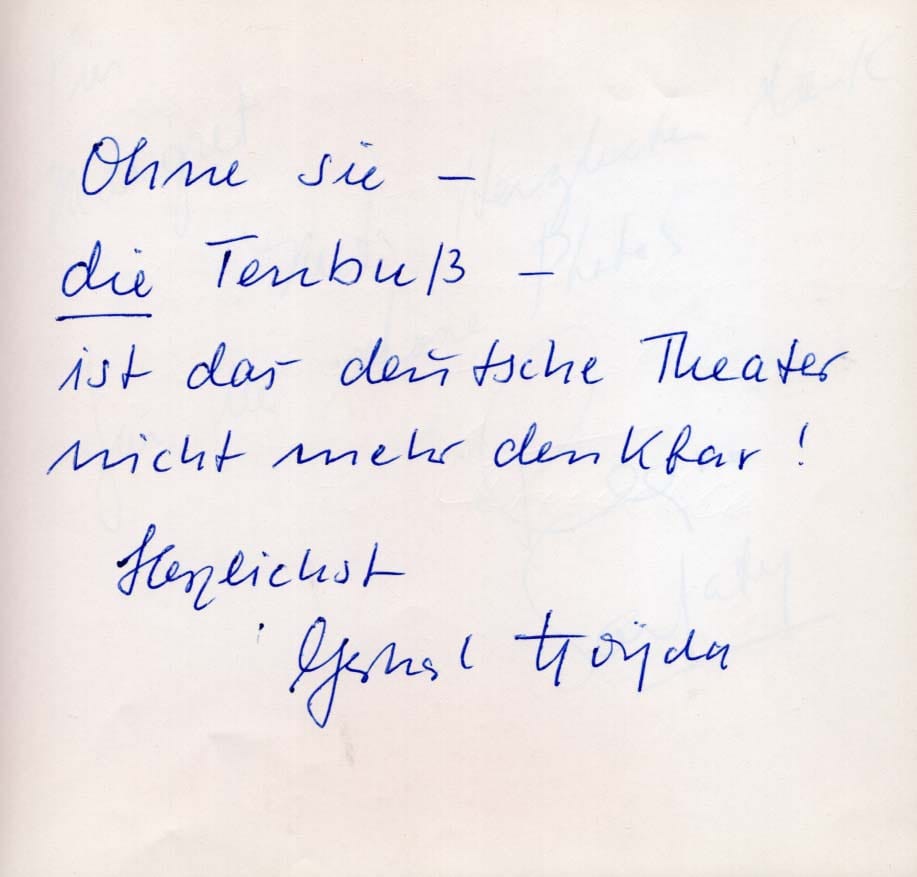 Ohne sie –
die Tenbuß –
ist das deutsche Theater
nicht mehr denkbar!
Herzlichst